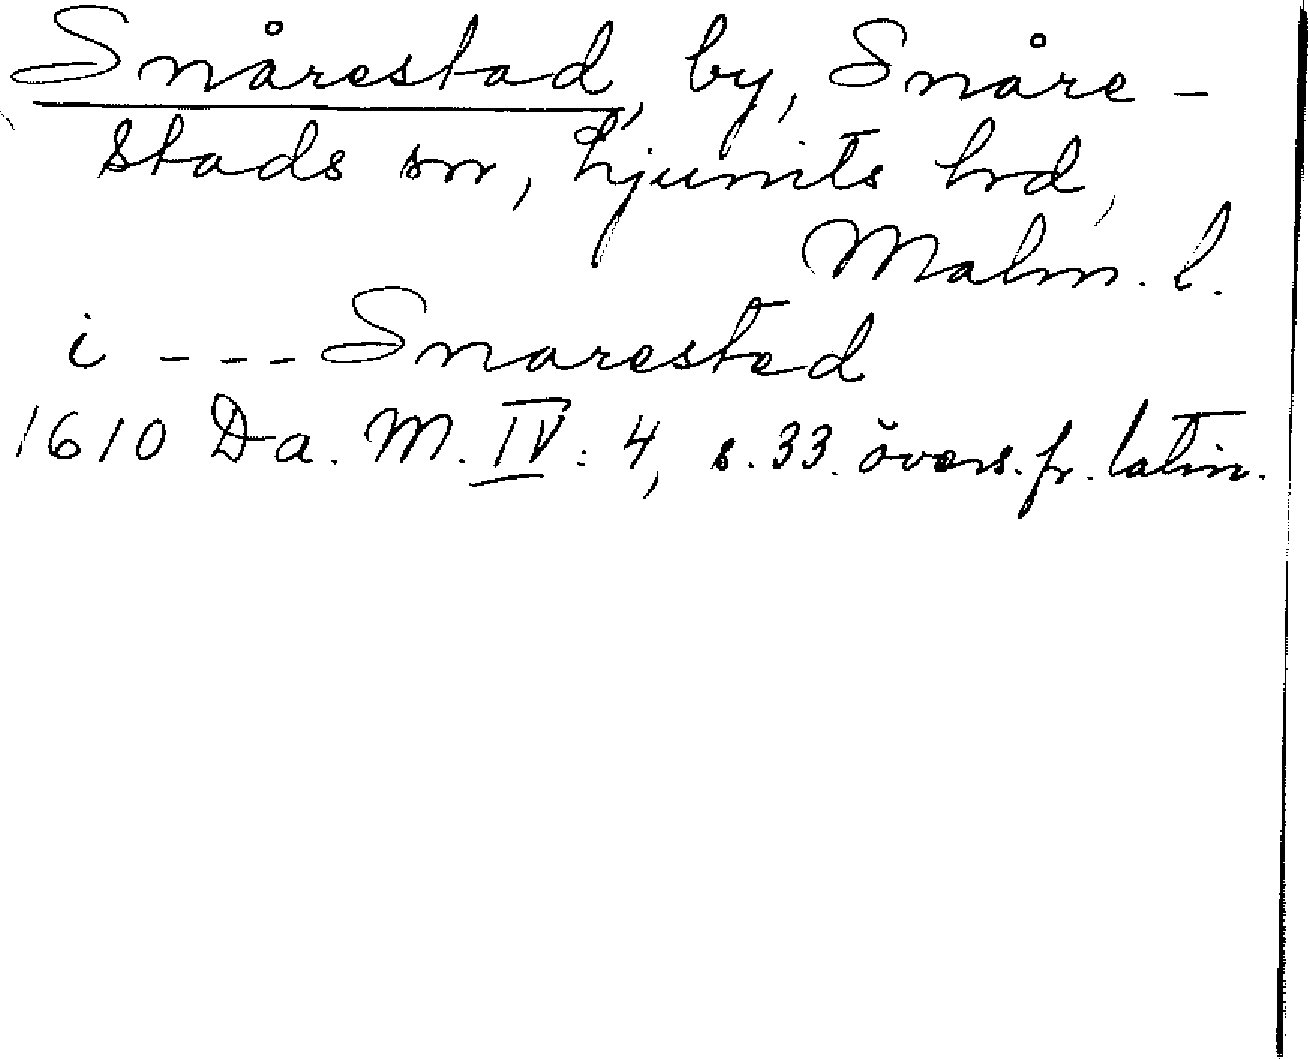 Snårestad, by, Snåre-
stads sn, Ljunits hrd,
Malm. l.
i --- Snarested
1610 Da. M. IV: 4, s. 33. övers. fr. latin.